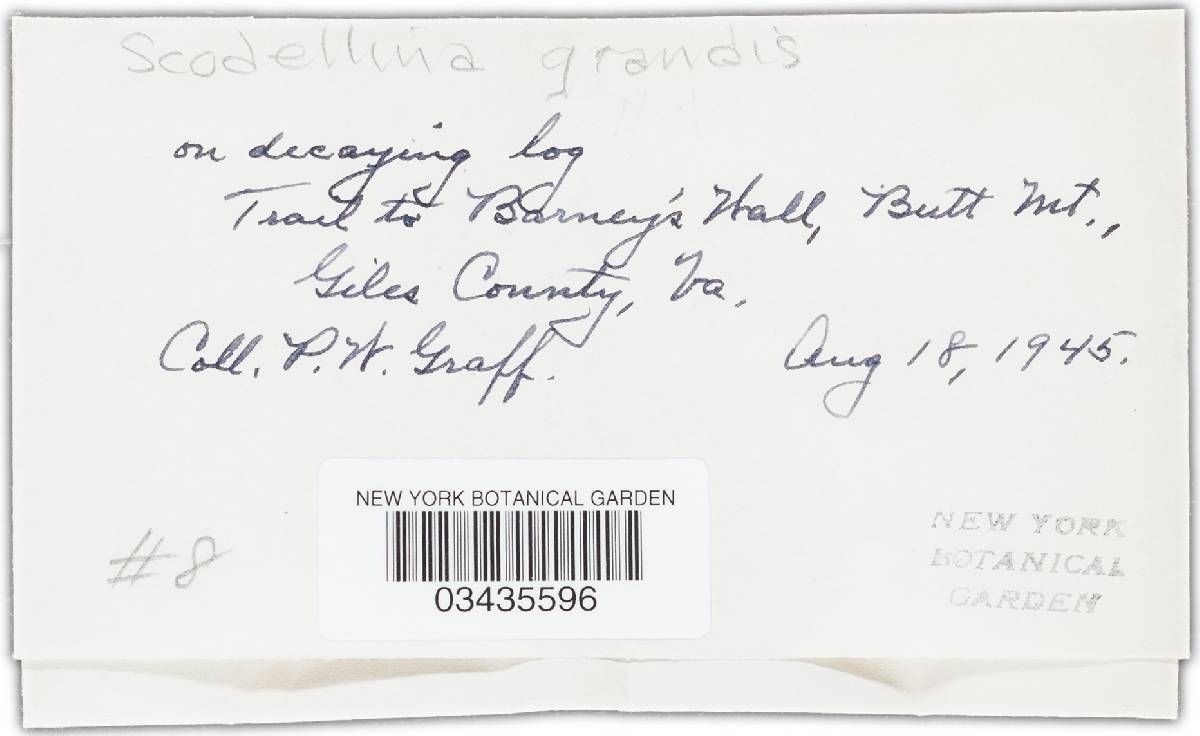 Scodellina grandis
on decaying log
Trail to Barney's Wall, Butt Mt.,
Giles County, Va.
Coll. P. W. Graff.
Aug 18, 1945.
NEW YORK BOTANICAL GARDEN
03435596
#8
NEW YORK
BOTANICAL
GARDEN